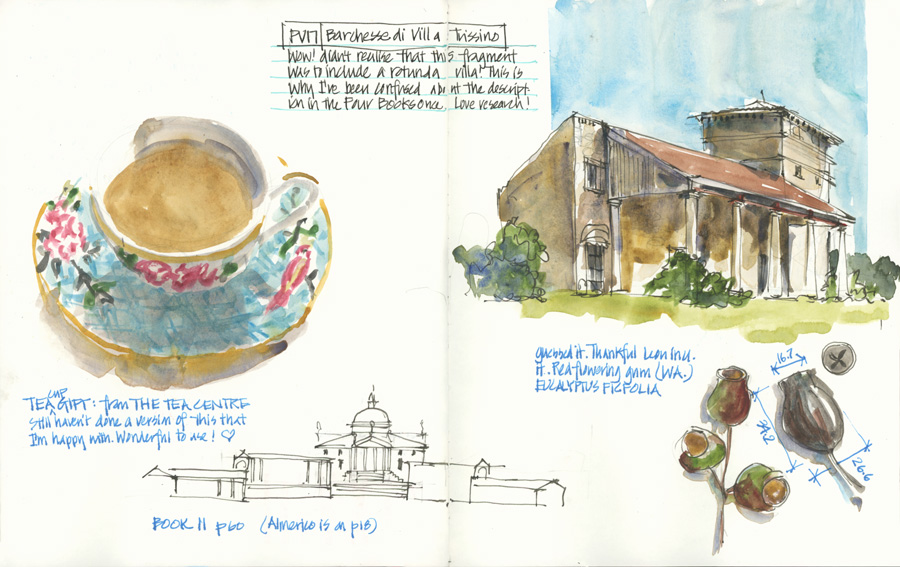 PVM Barchesse di Villa Trissino
Wow! didn't realise that this fragment
was to include a rotunda villa! This is
why I've been confused about the descript
ion in the Four Books once. Love research!
TEA CUP GIFT: from THE TEA CENTRE
still haven't done a version of this that
I'm happy with. Wonderful to use! ♡
BOOK II p60 (Almerico is on p18)
guessed it. Thankful I can incl.
it. Red flowering gum (WA.)
EUCALYPTUS FICFOLIA
16.7
34.2
26.6